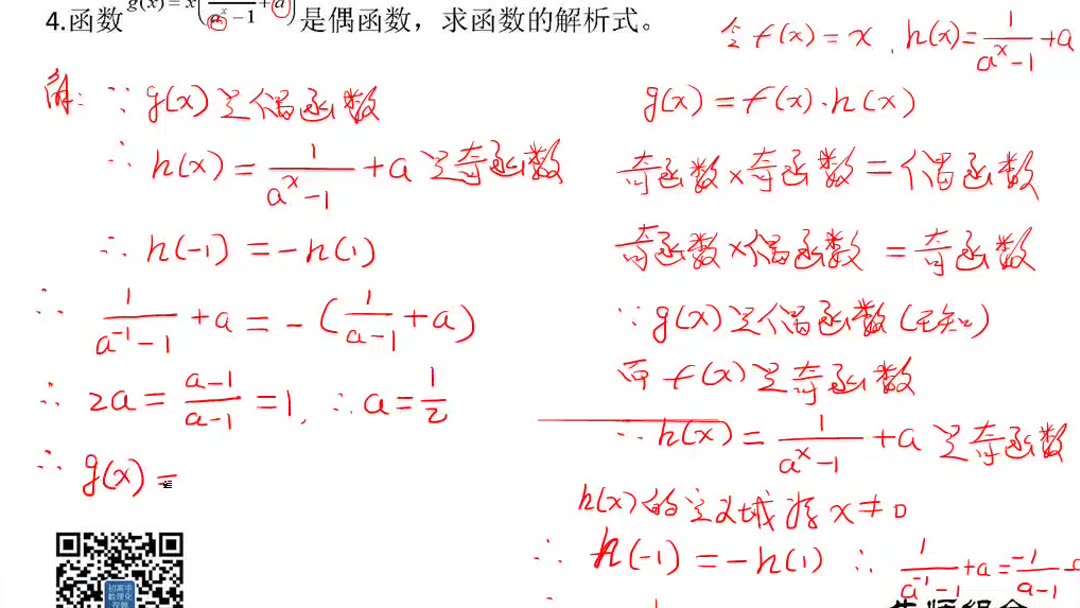 4.函数 g(x)=x(1/(a^x-1)+a) 是偶函数，求函数的解析式。
解: ∵ g(x)是偶函数
∴ h(x) = 1/(a^x-1) + a 是奇函数
∴ h(-1) = -h(1)
∴ 1/(a^-1-1) + a = -(1/(a-1) + a)
∴ 2a = (a-1)/(a-1) = 1, ∴ a = 1/2
∴ g(x) =
令 f(x) = x, h(x) = 1/(a^x-1) + a
g(x) = f(x)·h(x)
奇函数×奇函数 = 偶函数
奇函数×偶函数 = 奇函数
∵ g(x)是偶函数(已知)
而 f(x)是奇函数
∴ h(x) = 1/(a^x-1) + a 是奇函数
h(x)的定义域为 x≠0
∴ h(-1) = -h(1) ∴ 1/(a^-1-1) + a = -1/(a-1) -
初高中
数理化
视频